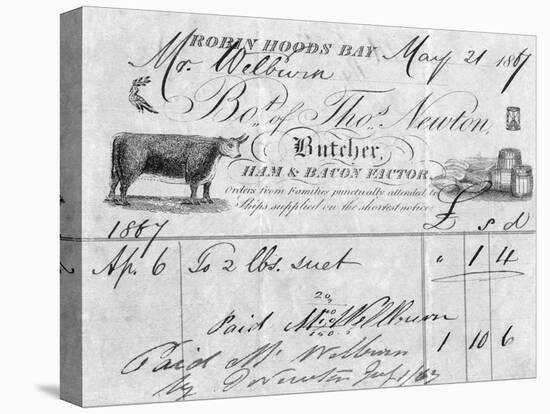 ROBIN HOODS BAY May 21 1867
Mr. Welburn
Bot. of Thos. Newton,
Butcher,
HAM & BACON FACTOR.
Orders from Families punctually attended to
Ships supplied on the shortest notice.
£ s d
1867
Ap. 6 To 2 lbs. suet " 1 4
20
Paid Mr Welburn
1 10 6
Paid Mr. Welburn
by